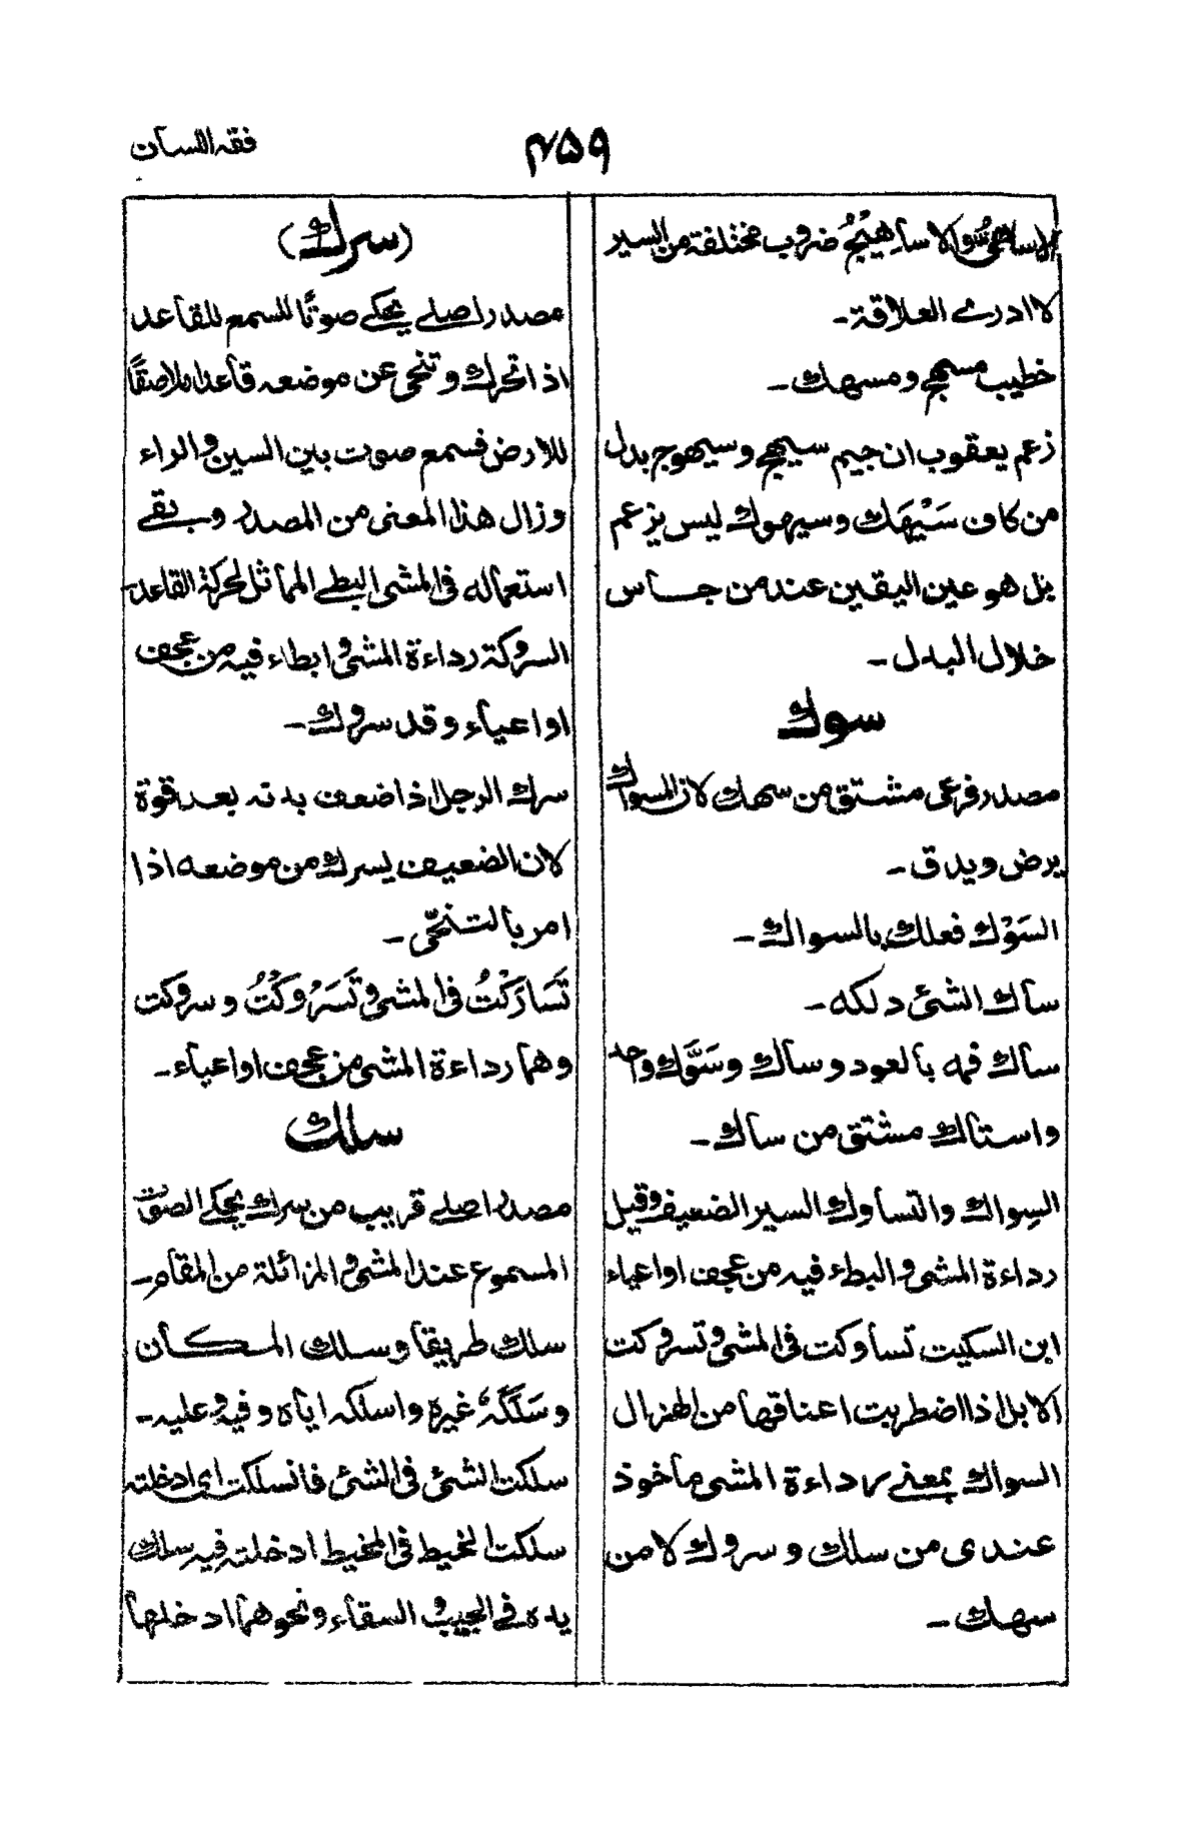 فقه اللسان
۴۵۹
الاساهی والاساهیج ضروب مختلفة من السیر
لا ادری العلاقة۔
خطیب مسهج ومسهك۔
زعم یعقوب ان جیم سیهج وسیهوج بدل
من كاف سَیْهَك وسیهوك لیس یزعم
بل هو عین الیقین عند من جاس
خلال البدل۔
سوك
مصدر فرعی مشتق من سهك لان المسواك
یرض ویدق۔
السَوْك فعلك بالسواك۔
ساك الشئ دلكه۔
ساك فمه بالعود وساك وسَوَّك واحد
واستاك مشتق من ساك۔
السِواك والتساوك السیر الضعیف وقیل
رداءة المشی والبطء فیه من عجف او اعیاء
ابن السكیت تساوكت فی المشی وتسروكت
الابل اذا اضطربت اعناقها من الهزال
السواك بمعنی رداءة المشی ماخوذ
عندی من سلك وسروك لا من
سهك۔
(سرك)
مصدر اصلی یحكی صوتًا للسمع للقاعد
اذا تحرك وتنحی عن موضعه قاعدا ملاصقًا
للارض فسمع صوت بین السین والراء
وزال هذا المعنی من المصدر وبقی
استعماله فی المشی البطی المماثل لحركة القاعد
السروكة رداءة المشی وابطاء فیه من عجف
او اعیاء وقد سروك۔
سرك الرجل اذا ضعف بدنه بعد قوة
لان الضعیف یسرك من موضعه اذا
امر بالتنحّی۔
تَسَارَكْتُ فی المشی وتَسَرْوَكْتُ وسروكت
وهما رداءة المشی من عجف او اعیاء۔
سلك
مصدر اصلی قریب من سرك یحكی الصوت
المسموع عند المشی والمزائلة من المقام۔
سلك طریقا وسلك المكان
وسَلَكَهٗ غیره واسلكه ایاه وفیه وعلیه۔
سلكت الشئ فی الشئ فانسلكت ای ادخلته
سلكت الخیط فی المخیط ادخلته فیه سلك
یده فی الجیب والسقاء ونحوهما ادخلها